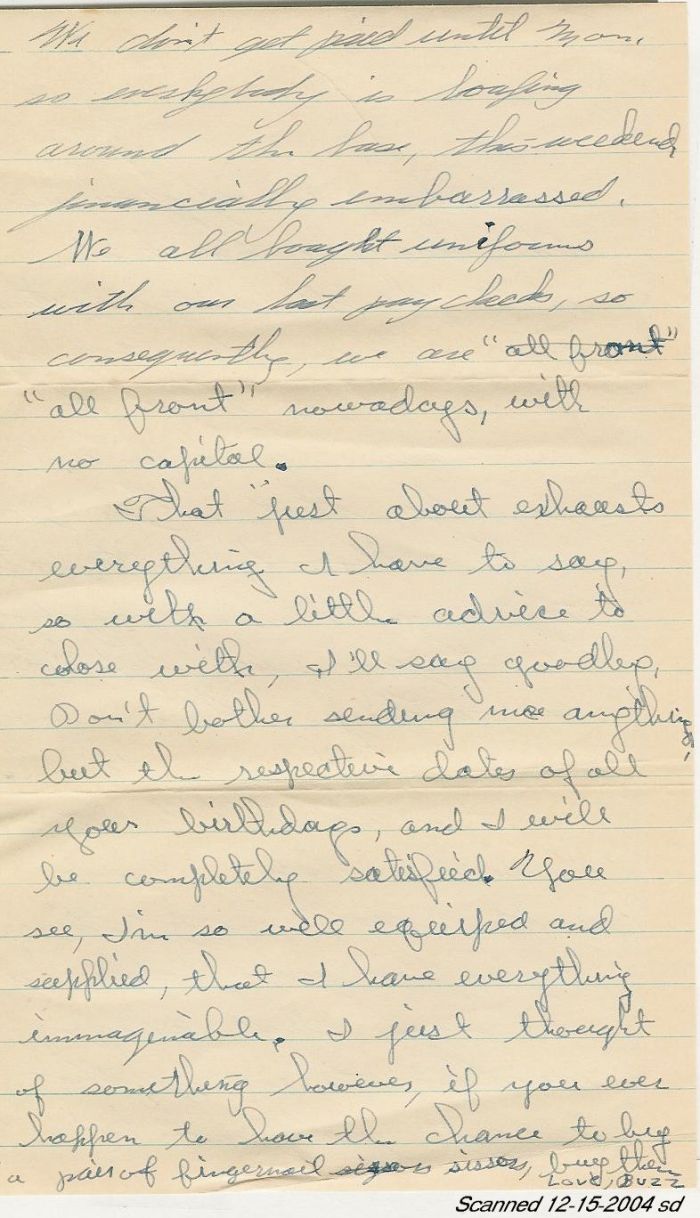 We don't get paid until Mon.
so everybody is loafing
around the base, this weekend,
financially embarrassed.
We all bought uniforms
with our last pay checks, so
consequently, we are "all front"
"all front" nowadays, with
no capital.
That just about exhausts
everything I have to say,
so with a little advice to
close with, I'll say goodbye,
Don't bother sending me anything,
but the respective dates of all
your birthdays, and I will
be completely satisfied. You
see, I'm so well equipped and
supplied, that I have everything
immaginable. I just thought
of something however, if you ever
happen to have the chance to buy
a pair of fingernail sissors, buy them
Love, Buzz
Scanned 12-15-2004 sd